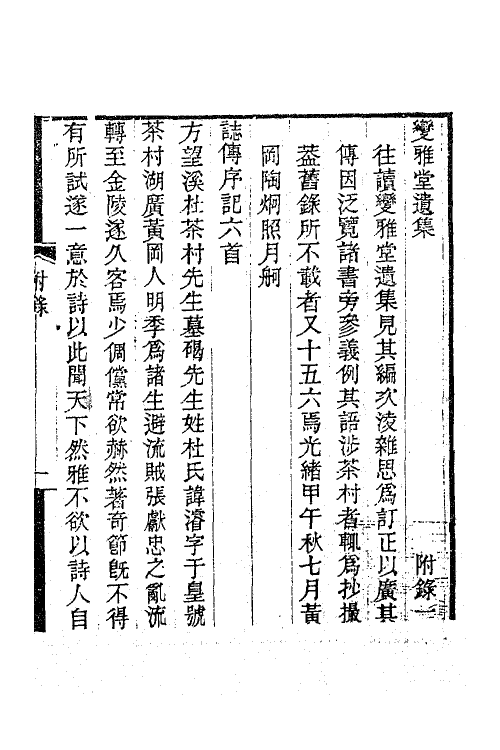 變雅堂遺集　附錄一
往讀變雅堂遺集見其編次淩雜思爲訂正以廣其
傳因泛覽諸書旁參義例其語涉茶村者輒爲抄撮
葢舊錄所不載者又十五六焉光緖甲午秋七月黃
岡陶炯照月舸
誌傳序記六首
方望溪杜茶村先生墓碣先生姓杜氏諱濬字于皇號
茶村湖廣黃岡人明季爲諸生避流賊張獻忠之亂流
轉至金陵遂久客焉少倜儻常欲赫然著奇節旣不得
有所試遂一意於詩以此聞天下然雅不欲以詩人自
附錄
一